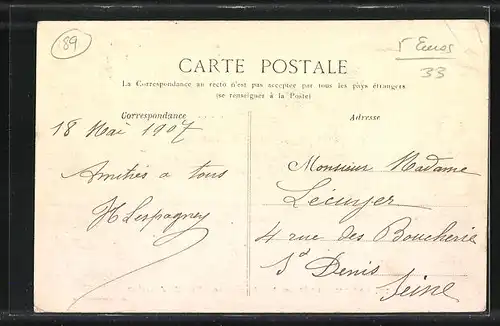 89
5 Euros
33
CARTE POSTALE
La Correspondance au recto n'est pas acceptée par tous les pays étrangers
(se renseigner à la Poste)
Correspondance
Adresse
18 Mai 1907
Amitiés a tous
Monsieur Madame
Lécuyer
4 rue des Boucherie
St Denis
Seine